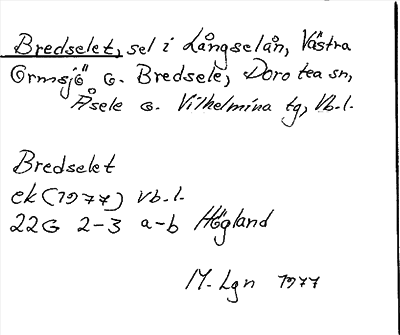 Bredselet, sel i Långselån, Västra
Ormsjö o. Bredsele, Dorotea sn,
Åsele o. Vilhelmina tg, Vb.l.
Bredselet
ek (1977) Vb.l.
22G 2-3 a-b Högland
M. Lgn 1977